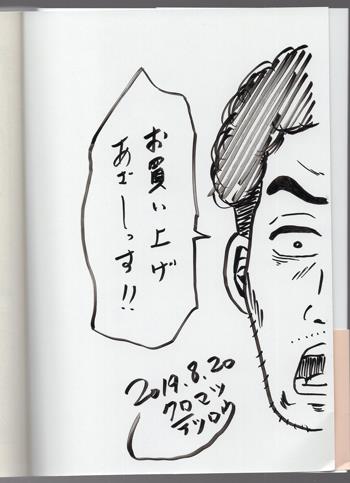 お買い上げ
あざーっす!!
2019.8.20
クロマツ
テツロウ